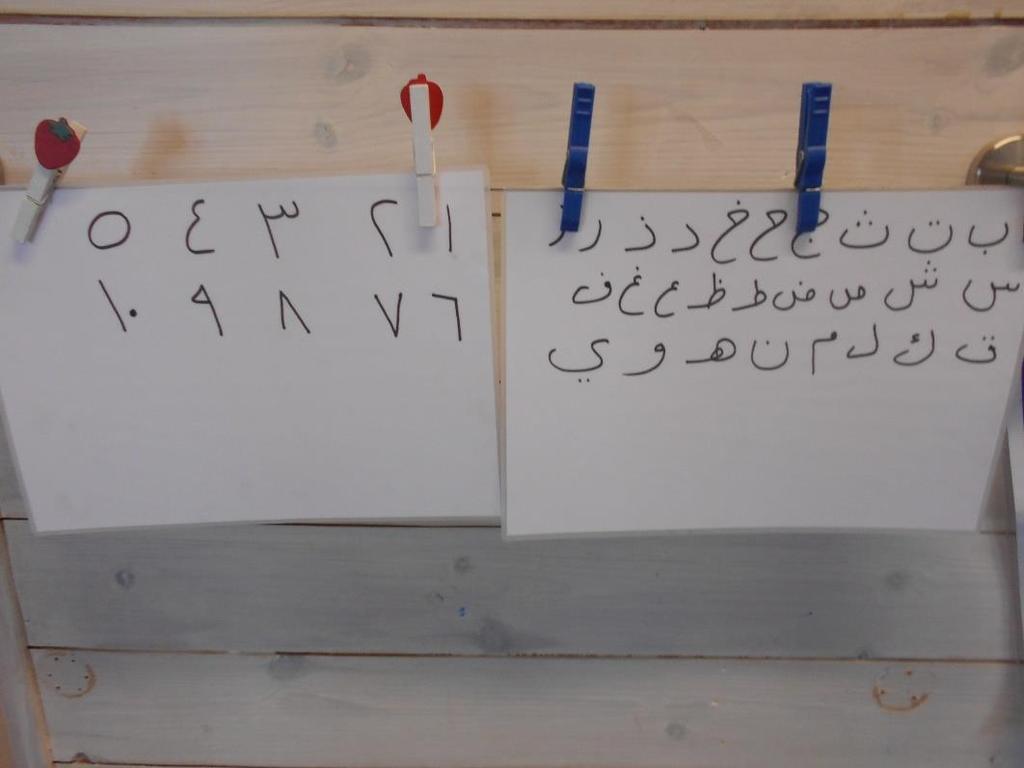 ١ ٢ ٣ ٤ ٥
٦ ٧ ٨ ٩ ١٠
ب ت ث ج ح خ د ذ ر ز
س ش ص ض ط ظ ع غ ف
ق ك ل م ن هـ و ي